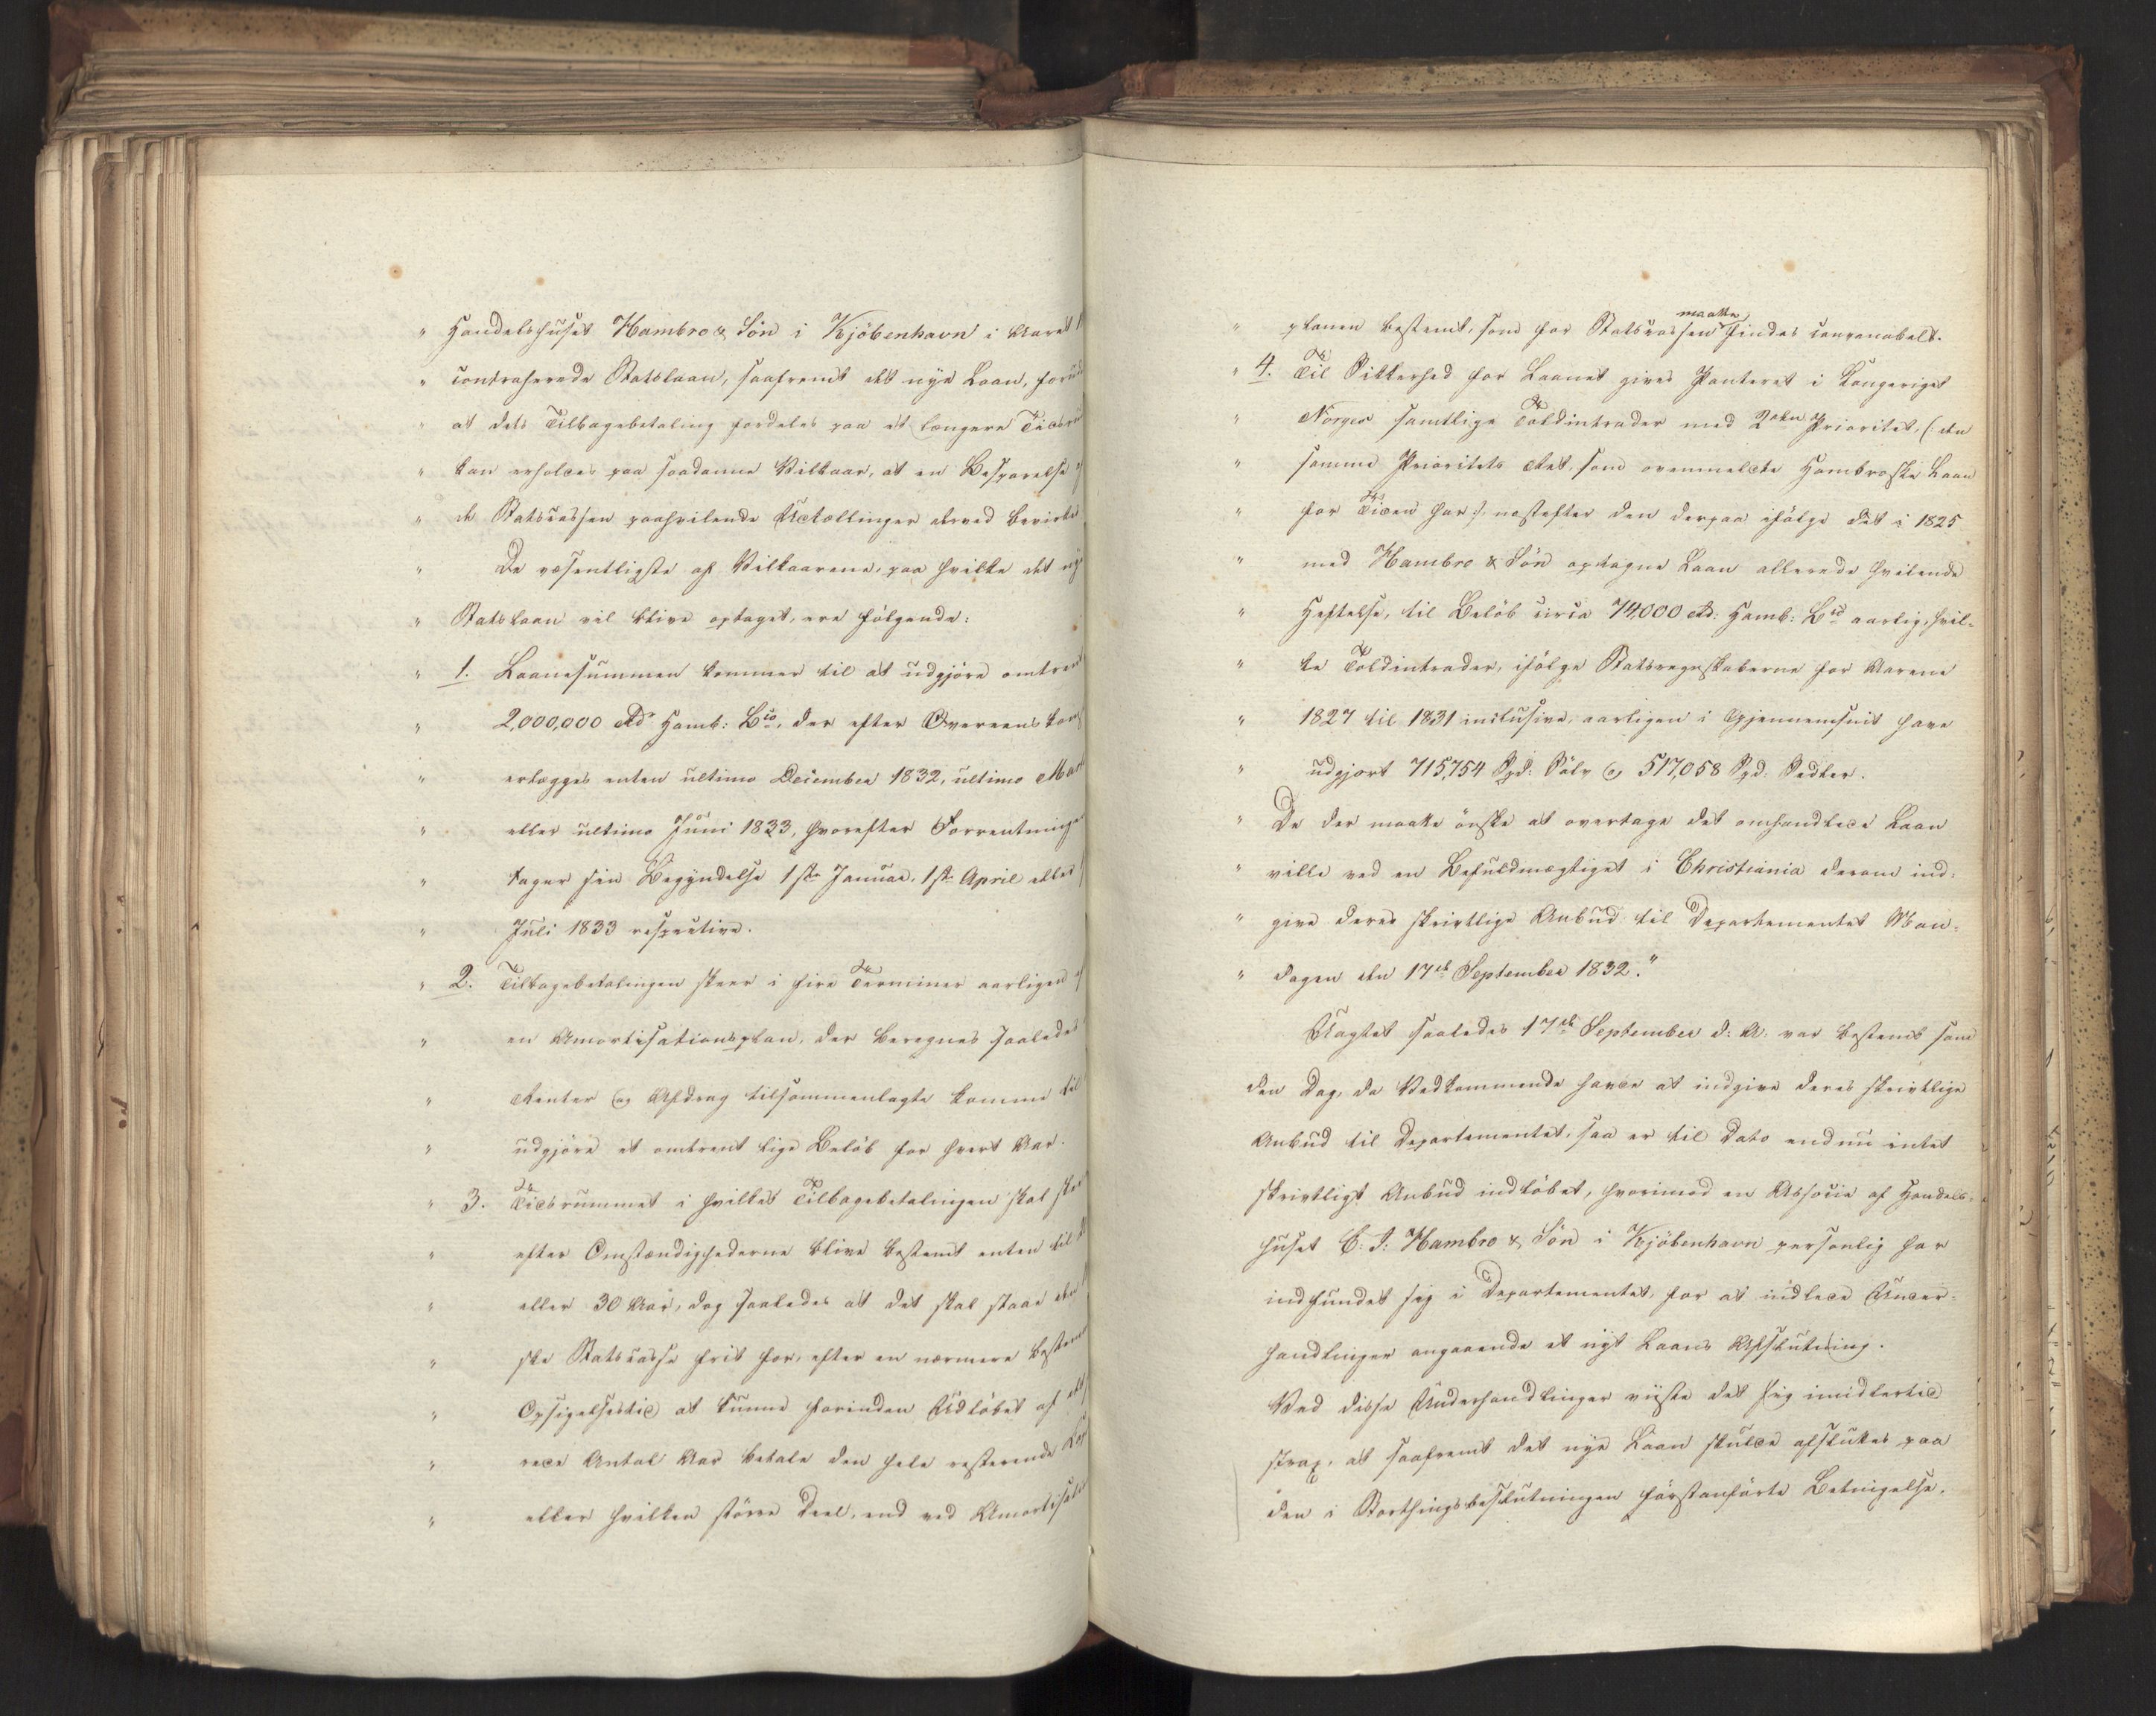 " Handelshuset Hambro & Sön i Kjöbenhavn i Aaret
" contraherede Statslaan, saafremt det nye Laan, foruden
" at dets Tilbagebetaling fordeles paa et længere Tidsrum
" kan erholdes paa saadanne Vilkaar, at en Besparelse
" de Statscassen paahvilende Udtællinger derved bevirkes
" De væsentligste af Vilkaarene, paa hvilke det nye
" Statslaan vil blive optaget, ere følgende:
" 1. Laanesummen kommer til at udgjöre omtrent
" 2,000,000 Rd Hamb: Bco, der efter Overeenskomst
" erlægges enten ultimo December 1832, ultimo Marts
" eller ultimo Juni 1833, hvorefter Forrentningen
" tager sin Begyndelse 1ste Januar, 1ste April eller
" Juli 1833 respective.
" 2. Tilbagebetalingen skeer i fire Terminer aarligen
" en Amortisationsplan, der beregnes saaledes
" Renter og Afdrag tilsammenlagte komme til
" udgjöre et omtrent lige Belöb for hvert Aar.
" 3. Tidsrummet i hvilket Tilbagebetalingen skal skee
" efter Omstændighederne blive bestemt enten til
" eller 30 Aar, dog saaledes at det skal staae den
" ske Statscasse frit for, efter en nærmere bestemt
" Opsigelsestid at kunne forinden Udløbet af
" rede Antal Aar betale den hele resterende
" eller hvilken større Deel, end ved Amortisations
" planen bestemt, som for Statscassen maatte findes convenabelt.
" 4. Til Sikkerhed for Laanet gives Panteret i Kongeriget
" Norges samtlige Toldintrader med 2den Prioritet, (: den
" samme Prioritets Ret, som ovenmeldte Hambroske Laan
" for Tiden har :) næstefter den derpaa ifölge det i 1825
" med Hambro & Sön optagne Laan allerede hvilende
" Heftelse, til Belöb circa 74,000 Rd: Hamb: Bco aarlig, hvil-
" ke Toldintrader, ifölge Statsregnskaberne for Aarene
" 1827 til 1831 inclusive, aarligen i Gjennemsnit have
" udgjort 715,754 Spd: Sölv og 517,058 Spd: Sedler.
" De der maatte önske at overtage det omhandlede Laan
" ville ved en Befuldmægtiget i Christiania derom ind-
" give deres skrivtlige Anbud til Departementet Man-
" dagen den 17de September 1832."
Uagtet saaledes 17de September d: A. var bestemt som
den Dag, da Vedkommende havde at indgive deres skrivtlige
Anbud til Departementet, saa er til Dato endnu intet
skrivtligt Anbud indløbet, hvorimod en Associe af Handels-
huset C: J: Hambro & Sön i Kjöbenhavn personlig har
indfundet sig i Departementet, for at indlede Under-
handlinger angaaende et nyt Laans Afslutning.
Ved disse Underhandlinger viiste det sig imidlertid
strax, at saafremt det nye Laan skulde afsluttes paa
den i Storthingsbeslutningen förstanførte Betingelse,